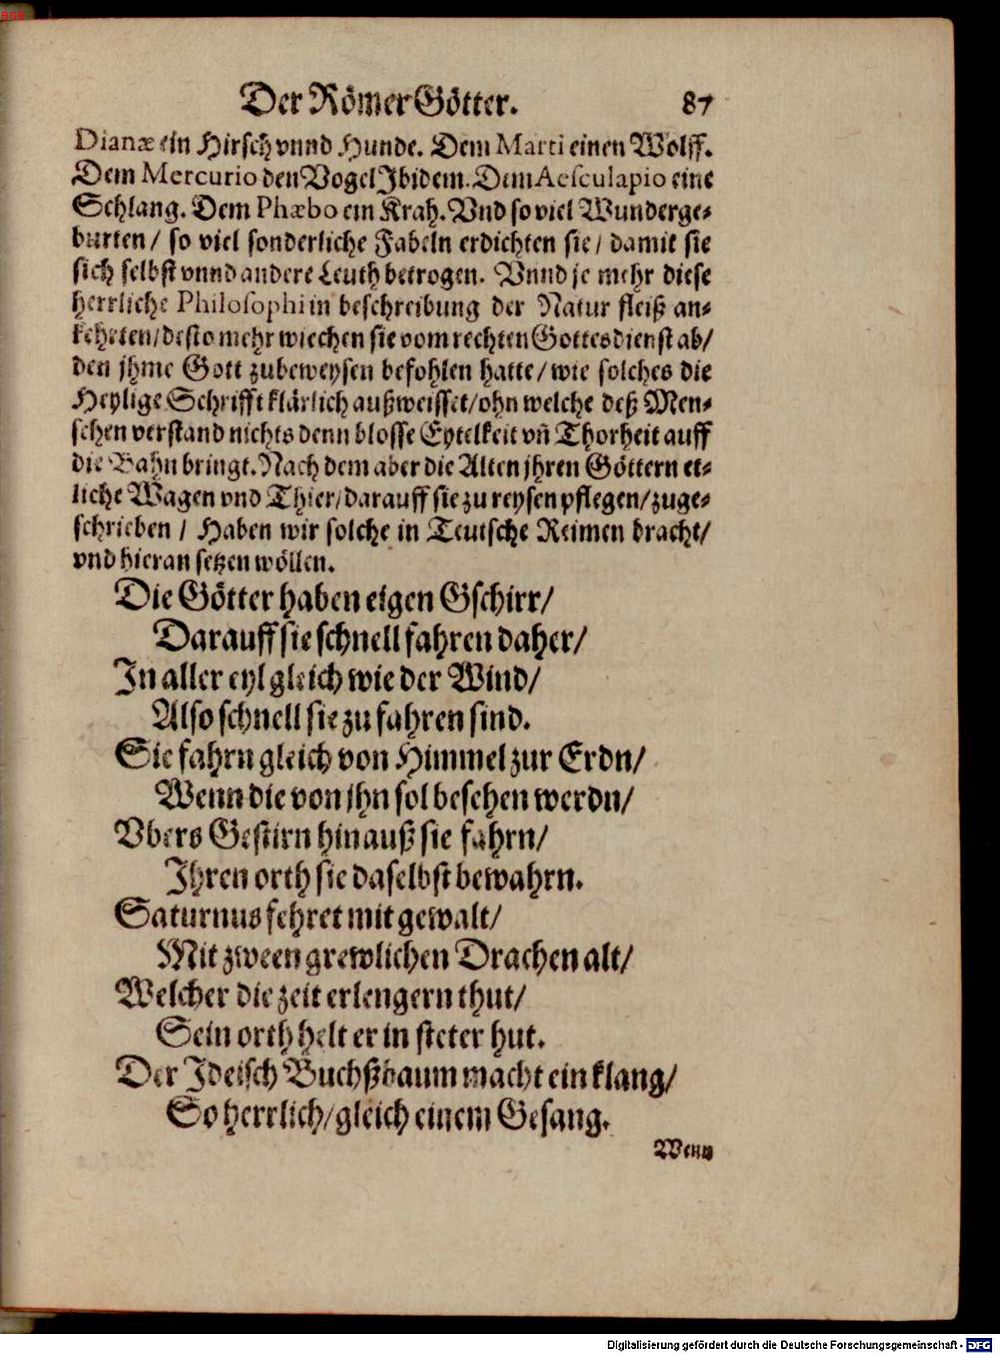 Der Römer Götter. 87
Dianæ ein Hirsch vnnd Hunde. Dem Marti einen Wolff.
Dem Mercurio den Vogel Jbidem. Dem Aesculapio eine
Schlang. Dem Phæbo ein Krah. Vnd so viel Wunderge-
burten / so viel sonderliche Fabeln erdichten sie / damit sie
sich selbst vnnd andere Leuth betrogen. Vnnd je mehr diese
herrliche Philosophi in beschreibung der Natur fleiß an-
kehrten / desto mehr wiechen sie vom rechten Gottesdienst ab /
den jhme Gott zubeweysen befohlen hatte / wie solches die
Heylige Schrifft klärlich außweisset / ohn welche deß Men-
schen verstand nichts denn blosse Eytelkeit vñ Thorheit auff
die Bahn bringt. Nach dem aber die Alten jhren Göttern et-
liche Wagen vnd Thier / darauff sie zu reysen pflegen / zuge-
schrieben / Haben wir solche in Teutsche Reimen bracht /
vnd hieran setzen wöllen.
Die Götter haben eigen Gschirr /
Darauff sie schnell fahren daher /
Jn aller eyl gleich wie der Wind /
Also schnell sie zu fahren sind.
Sie fahrn gleich von Himmel zur Erdn /
Wenn die von jhn sol besehen werdn /
Vbers Gestirn hinauß sie fahrn /
Jhren orth sie daselbst bewahrn.
Saturnus fehret mit gewalt /
Mit zween grewlichen Drachen alt /
Welcher die zeit erlengern thut /
Sein orth helt er in steter hut.
Der Jdeisch Buchßbaum macht ein klang /
So herrlich / gleich einem Gesang.
Wenn
Digitalisierung gefördert durch die Deutsche Forschungsgemeinschaft - DFG